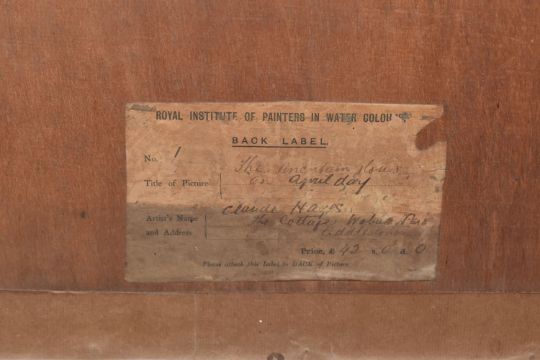 ROYAL INSTITUTE OF PAINTERS IN WATER COLOU
BACK LABEL.
No. 1
The uncertain glory
Title of Picture on April day
Claude Hayes
Artist's Name The Cottage
and Address
Price, £ 42 s. 0 d. 0
Please attach this Label to BACK of Picture